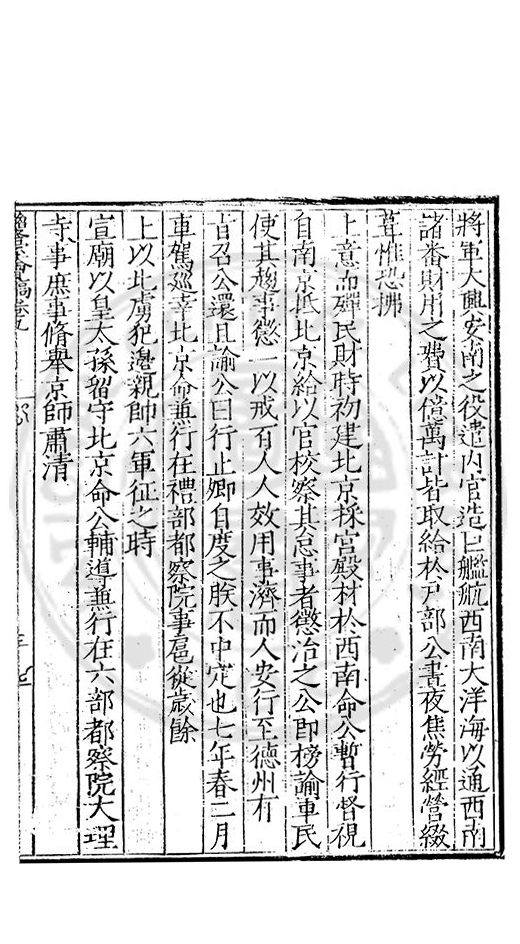 將軍大興安南之役遣內官造巨艦航西南大洋海以通西南
諸番財用之費以億萬計皆取給於戶部公晝夜焦勞經營綴
葺惟恐拂
上意而殫民財時初建北京採宮殿材於西南命公暫行督視
自南京抵北京給以官校察其怠事者懲治之公即榜諭車民
使其趨事懲一以戒百人人效用事濟而人安行至德州有
旨召公還且諭公曰行止卿自度之朕不中定也七年春二月
車駕巡幸北京命兼行在禮部都察院事扈從歲餘
上以北虜犯邊親帥六軍征之時
宣廟以皇太孫留守北京命公輔導兼行在六部都察院大理
寺事庶事脩舉京師肅清